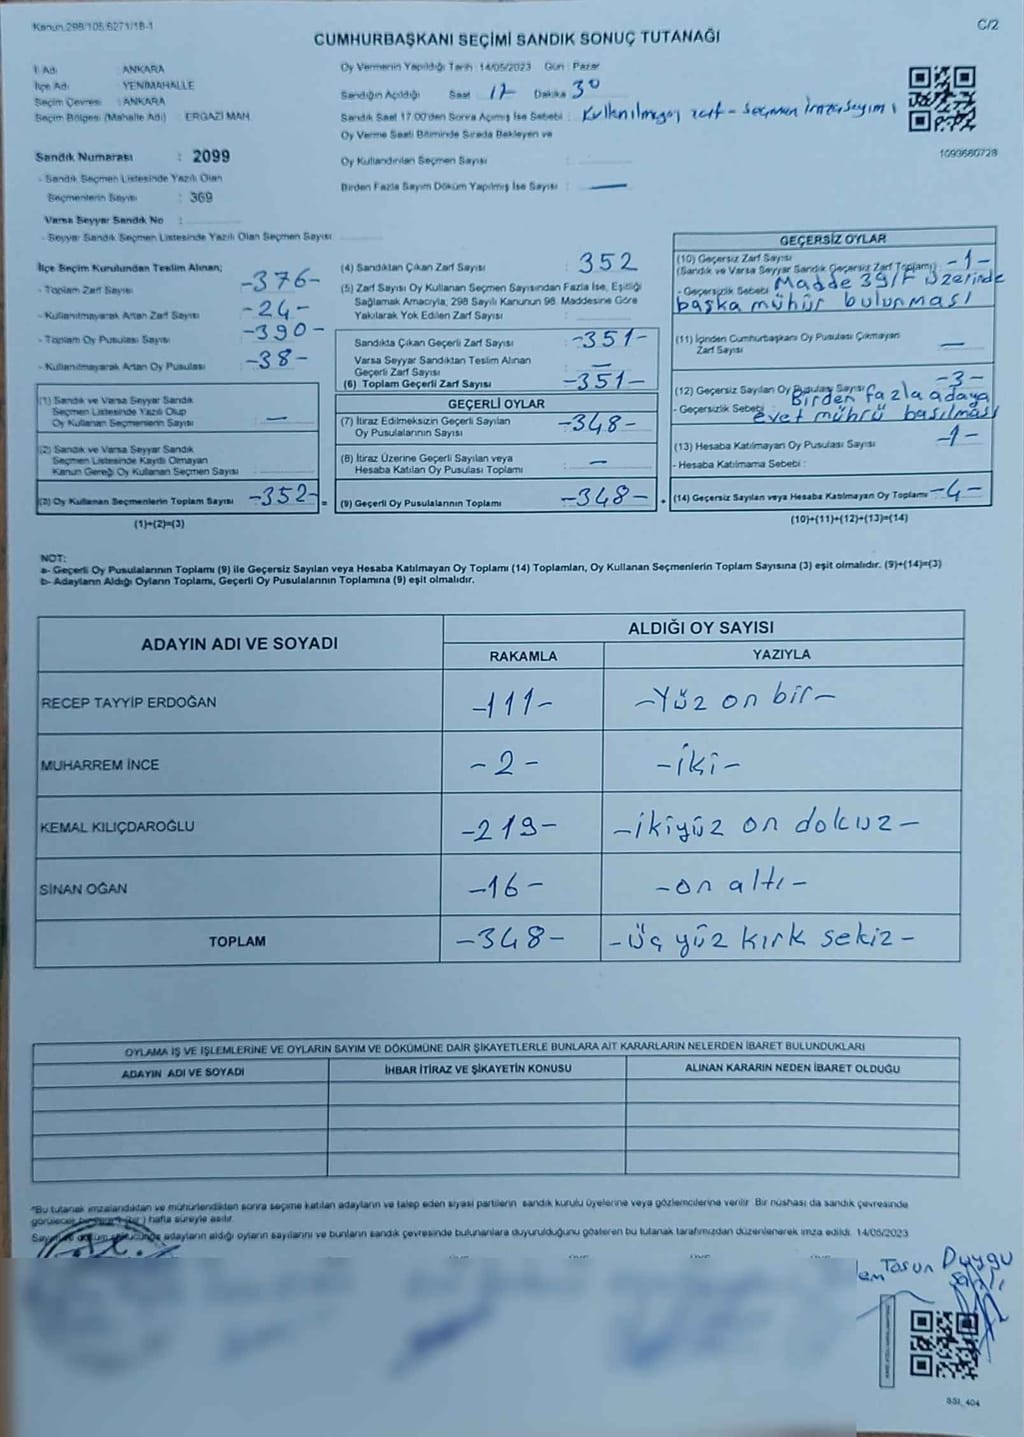 Kanun:298/105,6271/18-1
C/2
CUMHURBAŞKANI SEÇİMİ SANDIK SONUÇ TUTANAĞI
İl Adı : ANKARA
İlçe Adı : YENİMAHALLE
Seçim Çevresi : ANKARA
Seçim Bölgesi (Mahalle Adı) : ERGAZİ MAH.
Sandık Numarası : 2099
- Sandık Seçmen Listesinde Yazılı Olan
Seçmenlerin Sayısı : 369
Varsa Seyyar Sandık No :
- Seyyar Sandık Seçmen Listesinde Yazılı Olan Seçmen Sayısı
Oy Vermenin Yapıldığı Tarih : 14/05/2023 Gün : Pazar
Sandığın Açıldığı Saat 17 Dakika 30
Sandık Saat 17:00'den Sonra Açılmış İse Sebebi : Kullanılmayan zarf - Seçmen imza sayımı
Oy Verme Saati Bitiminde Sırada Bekleyen ve
Oy Kullandırılan Seçmen Sayısı :
Birden Fazla Sayım Döküm Yapılmış İse Sayısı : —
1093680728
İlçe Seçim Kurulundan Teslim Alınan;
- Toplam Zarf Sayısı -376-
- Kullanılmayarak Artan Zarf Sayısı -24-
- Toplam Oy Pusulası Sayısı -390-
- Kullanılmayarak Artan Oy Pusulası -38-
(1) Sandık ve Varsa Seyyar Sandık
Seçmen Listesinde Yazılı Olup
Oy Kullanan Seçmenlerin Sayısı —
(2) Sandık ve Varsa Seyyar Sandık
Seçmen Listesinde Kayıtlı Olmayan
Kanun Gereği Oy Kullanan Seçmen Sayısı
(3) Oy Kullanan Seçmenlerin Toplam Sayısı -352- =
(1)+(2)=(3)
(4) Sandıktan Çıkan Zarf Sayısı 352
(5) Zarf Sayısı Oy Kullanan Seçmen Sayısından Fazla İse, Eşitliği
Sağlamak Amacıyla, 298 Sayılı Kanunun 98. Maddesine Göre
Yakılarak Yok Edilen Zarf Sayısı :
Sandıkta Çıkan Geçerli Zarf Sayısı :-351-
Varsa Seyyar Sandıktan Teslim Alınan
Geçerli Zarf Sayısı : —
(6) Toplam Geçerli Zarf Sayısı -351-
GEÇERLİ OYLAR
(7) İtiraz Edilmeksizin Geçerli Sayılan
Oy Pusulalarının Sayısı -348-
(8) İtiraz Üzerine Geçerli Sayılan veya
Hesaba Katılan Oy Pusulası Toplamı : —
(9) Geçerli Oy Pusulalarının Toplamı -348- +
GEÇERSİZ OYLAR
(10) Geçersiz Zarf Sayısı
(Sandık ve Varsa Seyyar Sandık Geçersiz Zarf Toplamı) : -1-
- Geçersizlik Sebebi : Madde 39/F üzerinde
başka mühür bulunması
(11) İçinden Cumhurbaşkanı Oy Pusulası Çıkmayan
Zarf Sayısı —
(12) Geçersiz Sayılan Oy Pusulası Sayısı -3-
- Geçersizlik Sebebi Birden fazla adaya
evet mührü basılması
(13) Hesaba Katılmayan Oy Pusulası Sayısı -1-
- Hesaba Katılmama Sebebi :
(14) Geçersiz Sayılan veya Hesaba Katılmayan Oy Toplamı -4-
(10)+(11)+(12)+(13)=(14)
NOT:
a- Geçerli Oy Pusulalarının Toplamı (9) ile Geçersiz Sayılan veya Hesaba Katılmayan Oy Toplamı (14) Toplamları, Oy Kullanan Seçmenlerin Toplam Sayısına (3) eşit olmalıdır. (9)+(14)=(3)
b- Adayların Aldığı Oyların Toplamı, Geçerli Oy Pusulalarının Toplamına (9) eşit olmalıdır.
ADAYIN ADI VE SOYADI
ALDIĞI OY SAYISI
RAKAMLA YAZIYLA
RECEP TAYYİP ERDOĞAN -111- -Yüz on bir-
MUHARREM İNCE -2- -iki-
KEMAL KILIÇDAROĞLU -219- -ikiyüz on dokuz-
SİNAN OĞAN -16- -on altı-
TOPLAM -348- -Üç yüz kırk sekiz-
OYLAMA İŞ VE İŞLEMLERİNE VE OYLARIN SAYIM VE DÖKÜMÜNE DAİR ŞİKAYETLERLE BUNLARA AİT KARARLARIN NELERDEN İBARET BULUNDUKLARI
ADAYIN ADI VE SOYADI İHBAR İTİRAZ VE ŞİKAYETİN KONUSU ALINAN KARARIN NEDEN İBARET OLDUĞU
*Bu tutanak imzalandıktan ve mühürlendikten sonra seçime katılan adayların ve talep eden siyasi partilerin sandık kurulu üyelerine veya gözlemcilerine verilir. Bir nüshası da sandık çevresinde
görülecek bir yere 1 (bir) hafta süreyle asılır.
Sayım ve döküm sonucunda adayların aldığı oyların sayılarını ve bunların sandık çevresinde bulunanlara duyurulduğunu gösteren bu tutanak tarafımızdan düzenlenerek imza edildi. 14/05/2023
Tosun Duygu
SSI_404